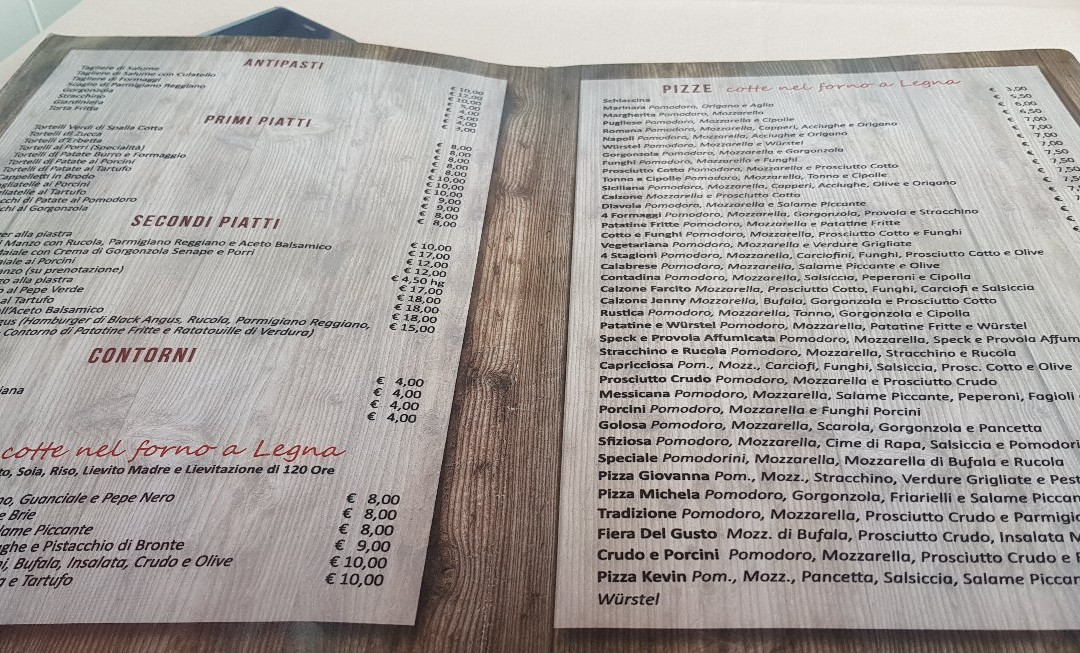 ANTIPASTI
Tagliere di Salume
Tagliere di Salume con Culatello
Tagliere di Formaggi
Scaglie di Parmigiano Reggiano
Gorgonzola
Stracchino
Giardiniera
Torta Fritta
€ 10,00
€ 12,00
€ 10,00
€ 5,00
€ 4,00
€ 4,00
€ 4,00
€ 3,00
PRIMI PIATTI
Tortelli Verdi di Spalla Cotta
Tortelli di Zucca
Tortelli d'Erbetta
Tortelli ai Porri (Specialità)
Tortelli di Patate Burro e Formaggio
Tortelli di Patate ai Porcini
Tortelli di Patate al Tartufo
Cappelletti in Brodo
gliatelle ai Porcini
liatelle al Tartufo
cchi di Patate al Pomodoro
chi al Gorgonzola
€ 8,00
€ 8,00
€ 8,00
€ 8,00
€ 10,00
€ 10,00
€ 10,00
€ 9,00
€ 9,00
€ 8,00
€ 8,00
SECONDI PIATTI
er alla piastra
i Manzo con Rucola, Parmigiano Reggiano e Aceto Balsamico
aiale con Crema di Gorgonzola Senape e Porri
iale ai Porcini
anzo (su prenotazione)
zo alla piastra
o al Pepe Verde
al Tartufo
ll'Aceto Balsamico
gus (Hamburger di Black Angus, Rucola, Parmigiano Reggiano,
Contorno di Patatine Fritte e Ratatouille di Verdura)
€ 10,00
€ 17,00
€ 12,00
€ 12,00
€ 4,50 hg
€ 17,00
€ 18,00
€ 18,00
€ 18,00
€ 15,00
CONTORNI
iana
€ 4,00
€ 4,00
€ 4,00
€ 4,00
cotte nel forno a Legna
to, Soia, Riso, Lievito Madre e Lievitazione di 120 Ore
no, Guanciale e Pepe Nero € 8,00
e Brie € 8,00
lame Piccante € 8,00
ghe e Pistacchio di Bronte € 9,00
i, Bufala, Insalata, Crudo e Olive € 10,00
a e Tartufo € 10,00
PIZZE cotte nel forno a Legna
Schiaccina € 3,00
Marinara Pomodoro, Origano e Aglio € 5,50
Margherita Pomodoro, Mozzarella € 6,00
Pugliese Pomodoro, Mozzarella e Cipolle € 6,50
Romana Pomodoro, Mozzarella, Capperi, Acciughe e Origano € 7,00
Napoli Pomodoro, Mozzarella, Acciughe e Origano € 7,00
Würstel Pomodoro, Mozzarella e Würstel € 7,00
Gorgonzola Pomodoro, Mozzarella e Gorgonzola € 7,00
Funghi Pomodoro, Mozzarella e Funghi € 7,50
Prosciutto Cotto Pomodoro, Mozzarella e Prosciutto Cotto € 7,50
Tonno e Cipolle Pomodoro, Mozzarella, Tonno e Cipolle € 7,50
Siciliana Pomodoro, Mozzarella, Capperi, Acciughe, Olive e Origano
Calzone Mozzarella e Prosciutto Cotto
Diavola Pomodoro, Mozzarella e Salame Piccante
4 Formaggi Pomodoro, Mozzarella, Gorgonzola, Provola e Stracchino
Patatine Fritte Pomodoro, Mozzarella e Patatine Fritte
Cotto e Funghi Pomodoro, Mozzarella, Prosciutto Cotto e Funghi
Vegetariana Pomodoro, Mozzarella e Verdure Grigliate
4 Stagioni Pomodoro, Mozzarella, Carciofini, Funghi, Prosciutto Cotto e Olive
Calabrese Pomodoro, Mozzarella, Salame Piccante e Olive
Contadina Pomodoro, Mozzarella, Salsiccia, Peperoni e Cipolla
Calzone Farcito Mozzarella, Prosciutto Cotto, Funghi, Carciofi e Salsiccia
Calzone Jenny Mozzarella, Bufala, Gorgonzola e Prosciutto Cotto
Rustica Pomodoro, Mozzarella, Tonno, Gorgonzola e Cipolla
Patatine e Würstel Pomodoro, Mozzarella, Patatine Fritte e Würstel
Speck e Provola Affumicata Pomodoro, Mozzarella, Speck e Provola Affum
Stracchino e Rucola Pomodoro, Mozzarella, Stracchino e Rucola
Capricciosa Pom., Mozz., Carciofi, Funghi, Salsiccia, Prosc. Cotto e Olive
Prosciutto Crudo Pomodoro, Mozzarella e Prosciutto Crudo
Messicana Pomodoro, Mozzarella, Salame Piccante, Peperoni, Fagioli
Porcini Pomodoro, Mozzarella e Funghi Porcini
Golosa Pomodoro, Mozzarella, Scarola, Gorgonzola e Pancetta
Sfiziosa Pomodoro, Mozzarella, Cime di Rapa, Salsiccia e Pomodori
Speciale Pomodorini, Mozzarella, Mozzarella di Bufala e Rucola
Pizza Giovanna Pom., Mozz., Stracchino, Verdure Grigliate e Pest
Pizza Michela Pomodoro, Gorgonzola, Friarielli e Salame Piccan
Tradizione Pomodoro, Mozzarella, Prosciutto Crudo e Parmigia
Fiera Del Gusto Mozz. di Bufala, Prosciutto Crudo, Insalata M
Crudo e Porcini Pomodoro, Mozzarella, Prosciutto Crudo e F
Pizza Kevin Pom., Mozz., Pancetta, Salsiccia, Salame Piccan
Würstel